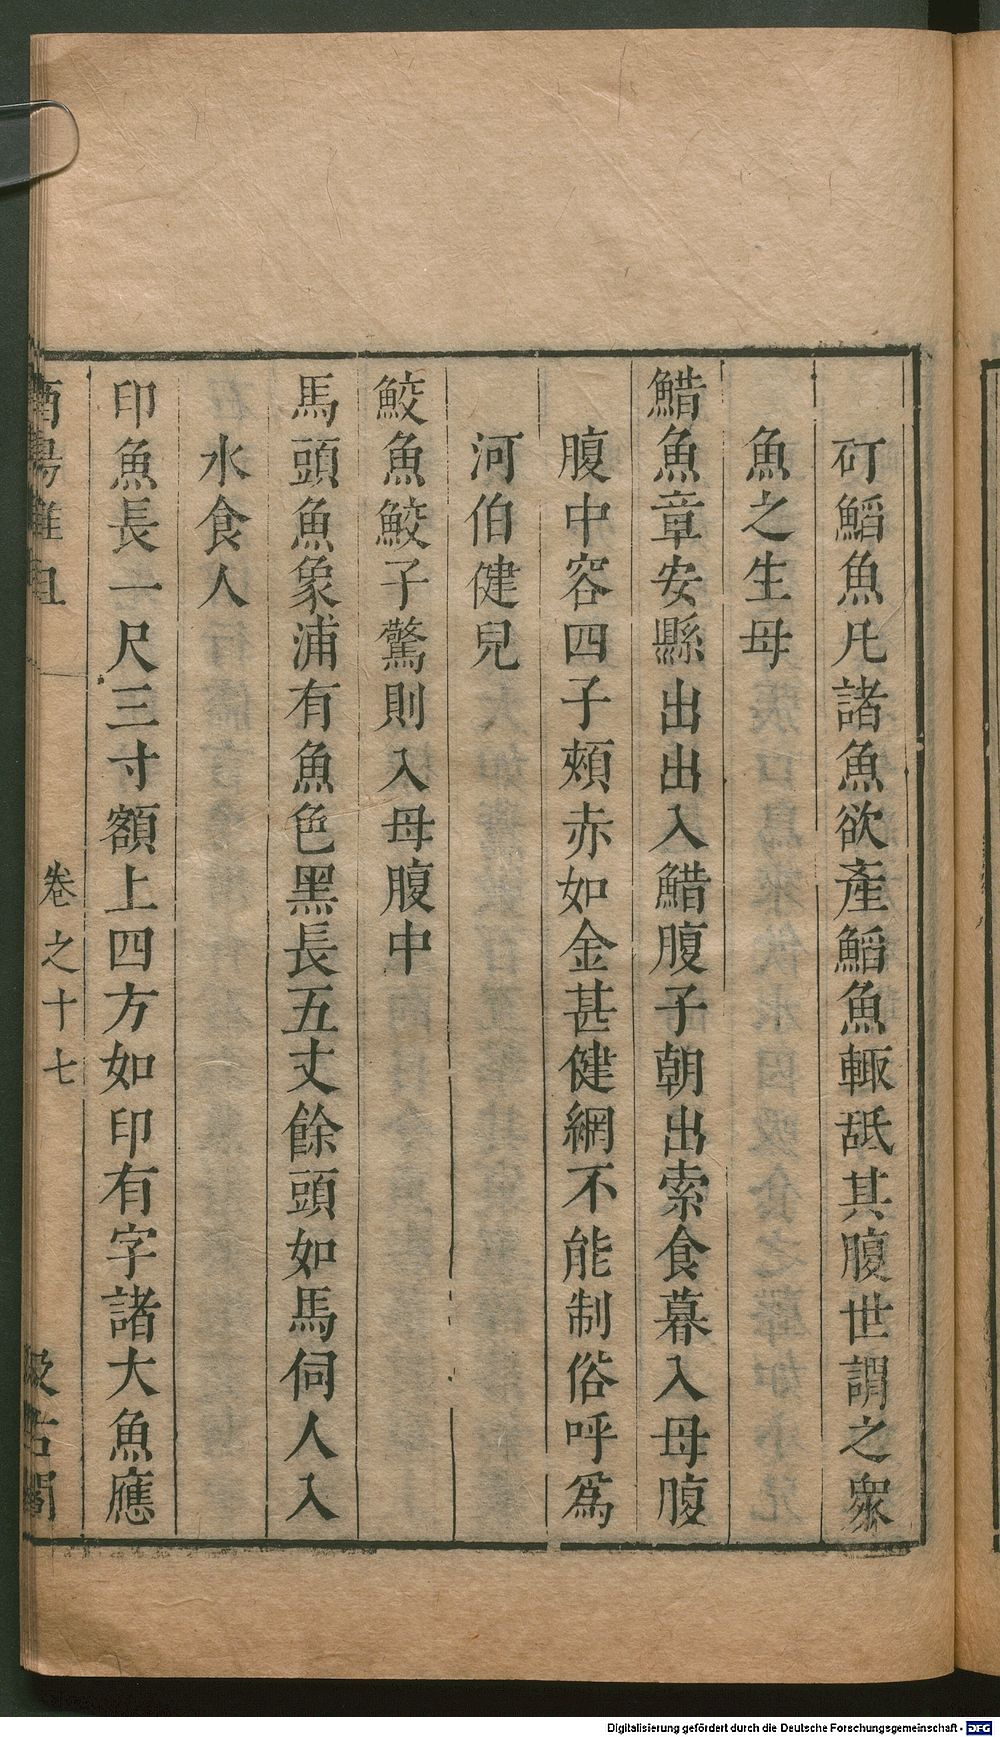 矴鰌魚凡諸魚欲產鰌魚輙䑛其腹世謂之衆
魚之生母
䱜魚章安縣出出入䱜腹子朝出索食暮入母腹
腹中容四子頰赤如金甚健網不能制俗呼爲
河伯健兒
鮫魚鮫子驚則入母腹中
馬頭魚象浦有魚色黑長五丈餘頭如馬伺人入
水食人
印魚長一尺三寸額上四方如印有字諸大魚應
酉陽雜俎 卷之十七 汲古閣
Digitalisierung gefördert durch die Deutsche Forschungsgemeinschaft - DFG